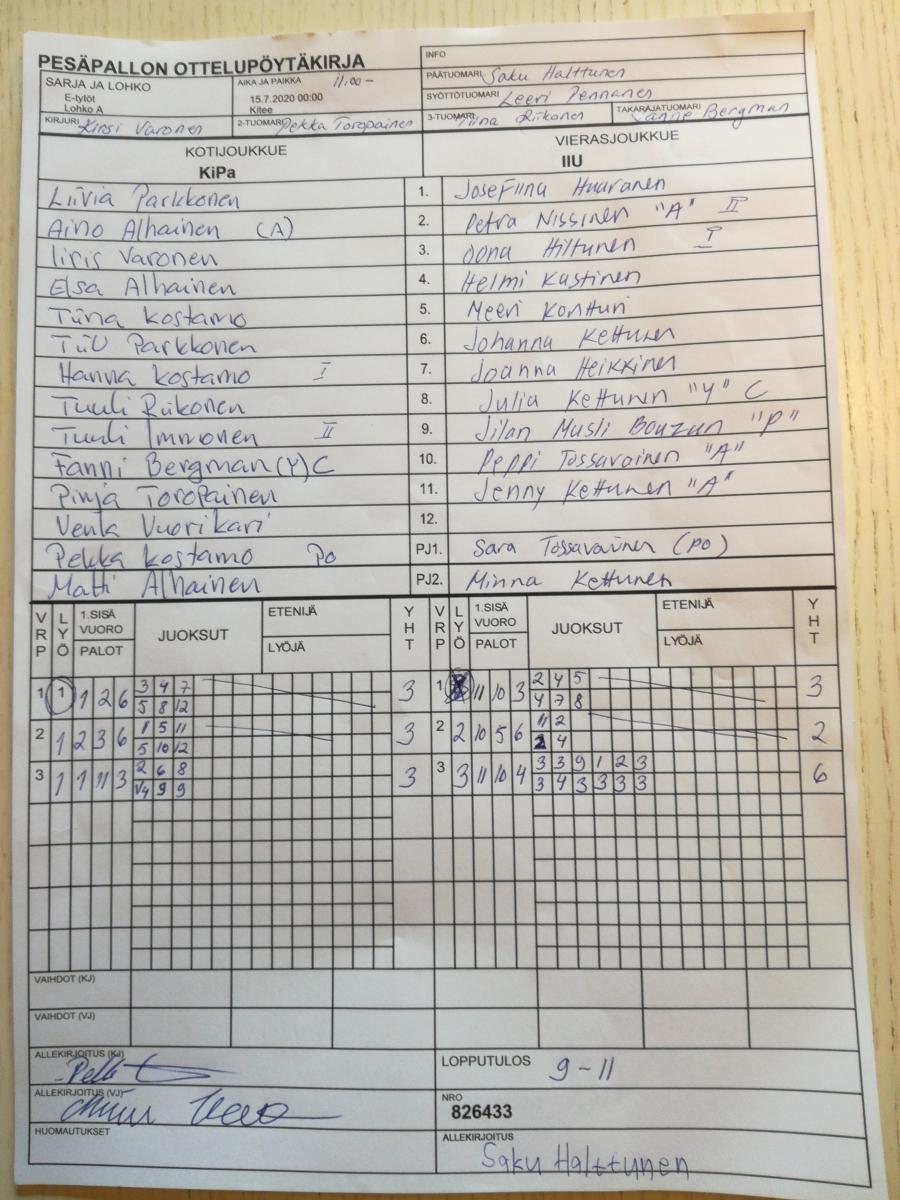 PESÄPALLON OTTELUPÖYTÄKIRJA
INFO
SARJA JA LOHKO
E-tytöt
Lohko A
AIKA JA PAIKKA 11.00-
15.7.2020 00:00
Kitee
PÄÄTUOMARI Saku Halttunen
SYÖTTÖTUOMARI Leevi Pennanen
KIRJURI Kirsi Varonen
2-TUOMARI Pekka Toropainen
3-TUOMARI Tiina Riikonen
TAKARAJATUOMARI Janne Bergman
KOTIJOUKKUE
KiPa
VIERASJOUKKUE
IIU
Liivia Parkkonen 1. Josefiina Huovanen
Aino Alhainen (A) 2. Petra Nissinen "A" II
Iiris Varonen 3. Oona Hiltunen I
Elsa Alhainen 4. Helmi Kastinen
Tiina Kostamo 5. Meeri Kontturi
TiiU Parkkonen 6. Johanna Kettunen
Hanna Kostamo I 7. Joanna Heikkinen
Tuuli Riikonen 8. Julia Kettunen "Y" C
Tuuli Immonen II 9. Jilan Musli Bouzun "P"
Fanni Bergman (Y) C 10. Peppi Tossavainen "A"
Pinja Toropainen 11. Jenny Kettunen "A"
Venla Vuorikari 12.
Pekka Kostamo Po PJ1. Sara Tossavainen (po)
Matti Alhainen PJ2. Minna Kettunen
VRP LYÖ 1.SISÄ VUORO PALOT JUOKSUT ETENIJÄ LYÖJÄ YHT VRP LYÖ 1.SISÄ VUORO PALOT JUOKSUT ETENIJÄ LYÖJÄ YHT
1 1 1 2 6 3 4 7 3 1 11 10 3 2 4 5 3
5 8 12 4 7 8
2 1 2 3 6 1 5 11 3 2 2 10 5 6 11 2 2
5 10 12 2 4
3 1 1 11 3 2 6 8 3 3 3 11 10 4 3 3 9 1 2 3 6
4 9 9 3 4 3 3 3 3
VAIHDOT (KJ)
VAIHDOT (VJ)
ALLEKIRJOITUS (KJ)
LOPPUTULOS 9-11
ALLEKIRJOITUS (VJ)
NRO
826433
HUOMAUTUKSET
ALLEKIRJOITUS
Saku Halttunen